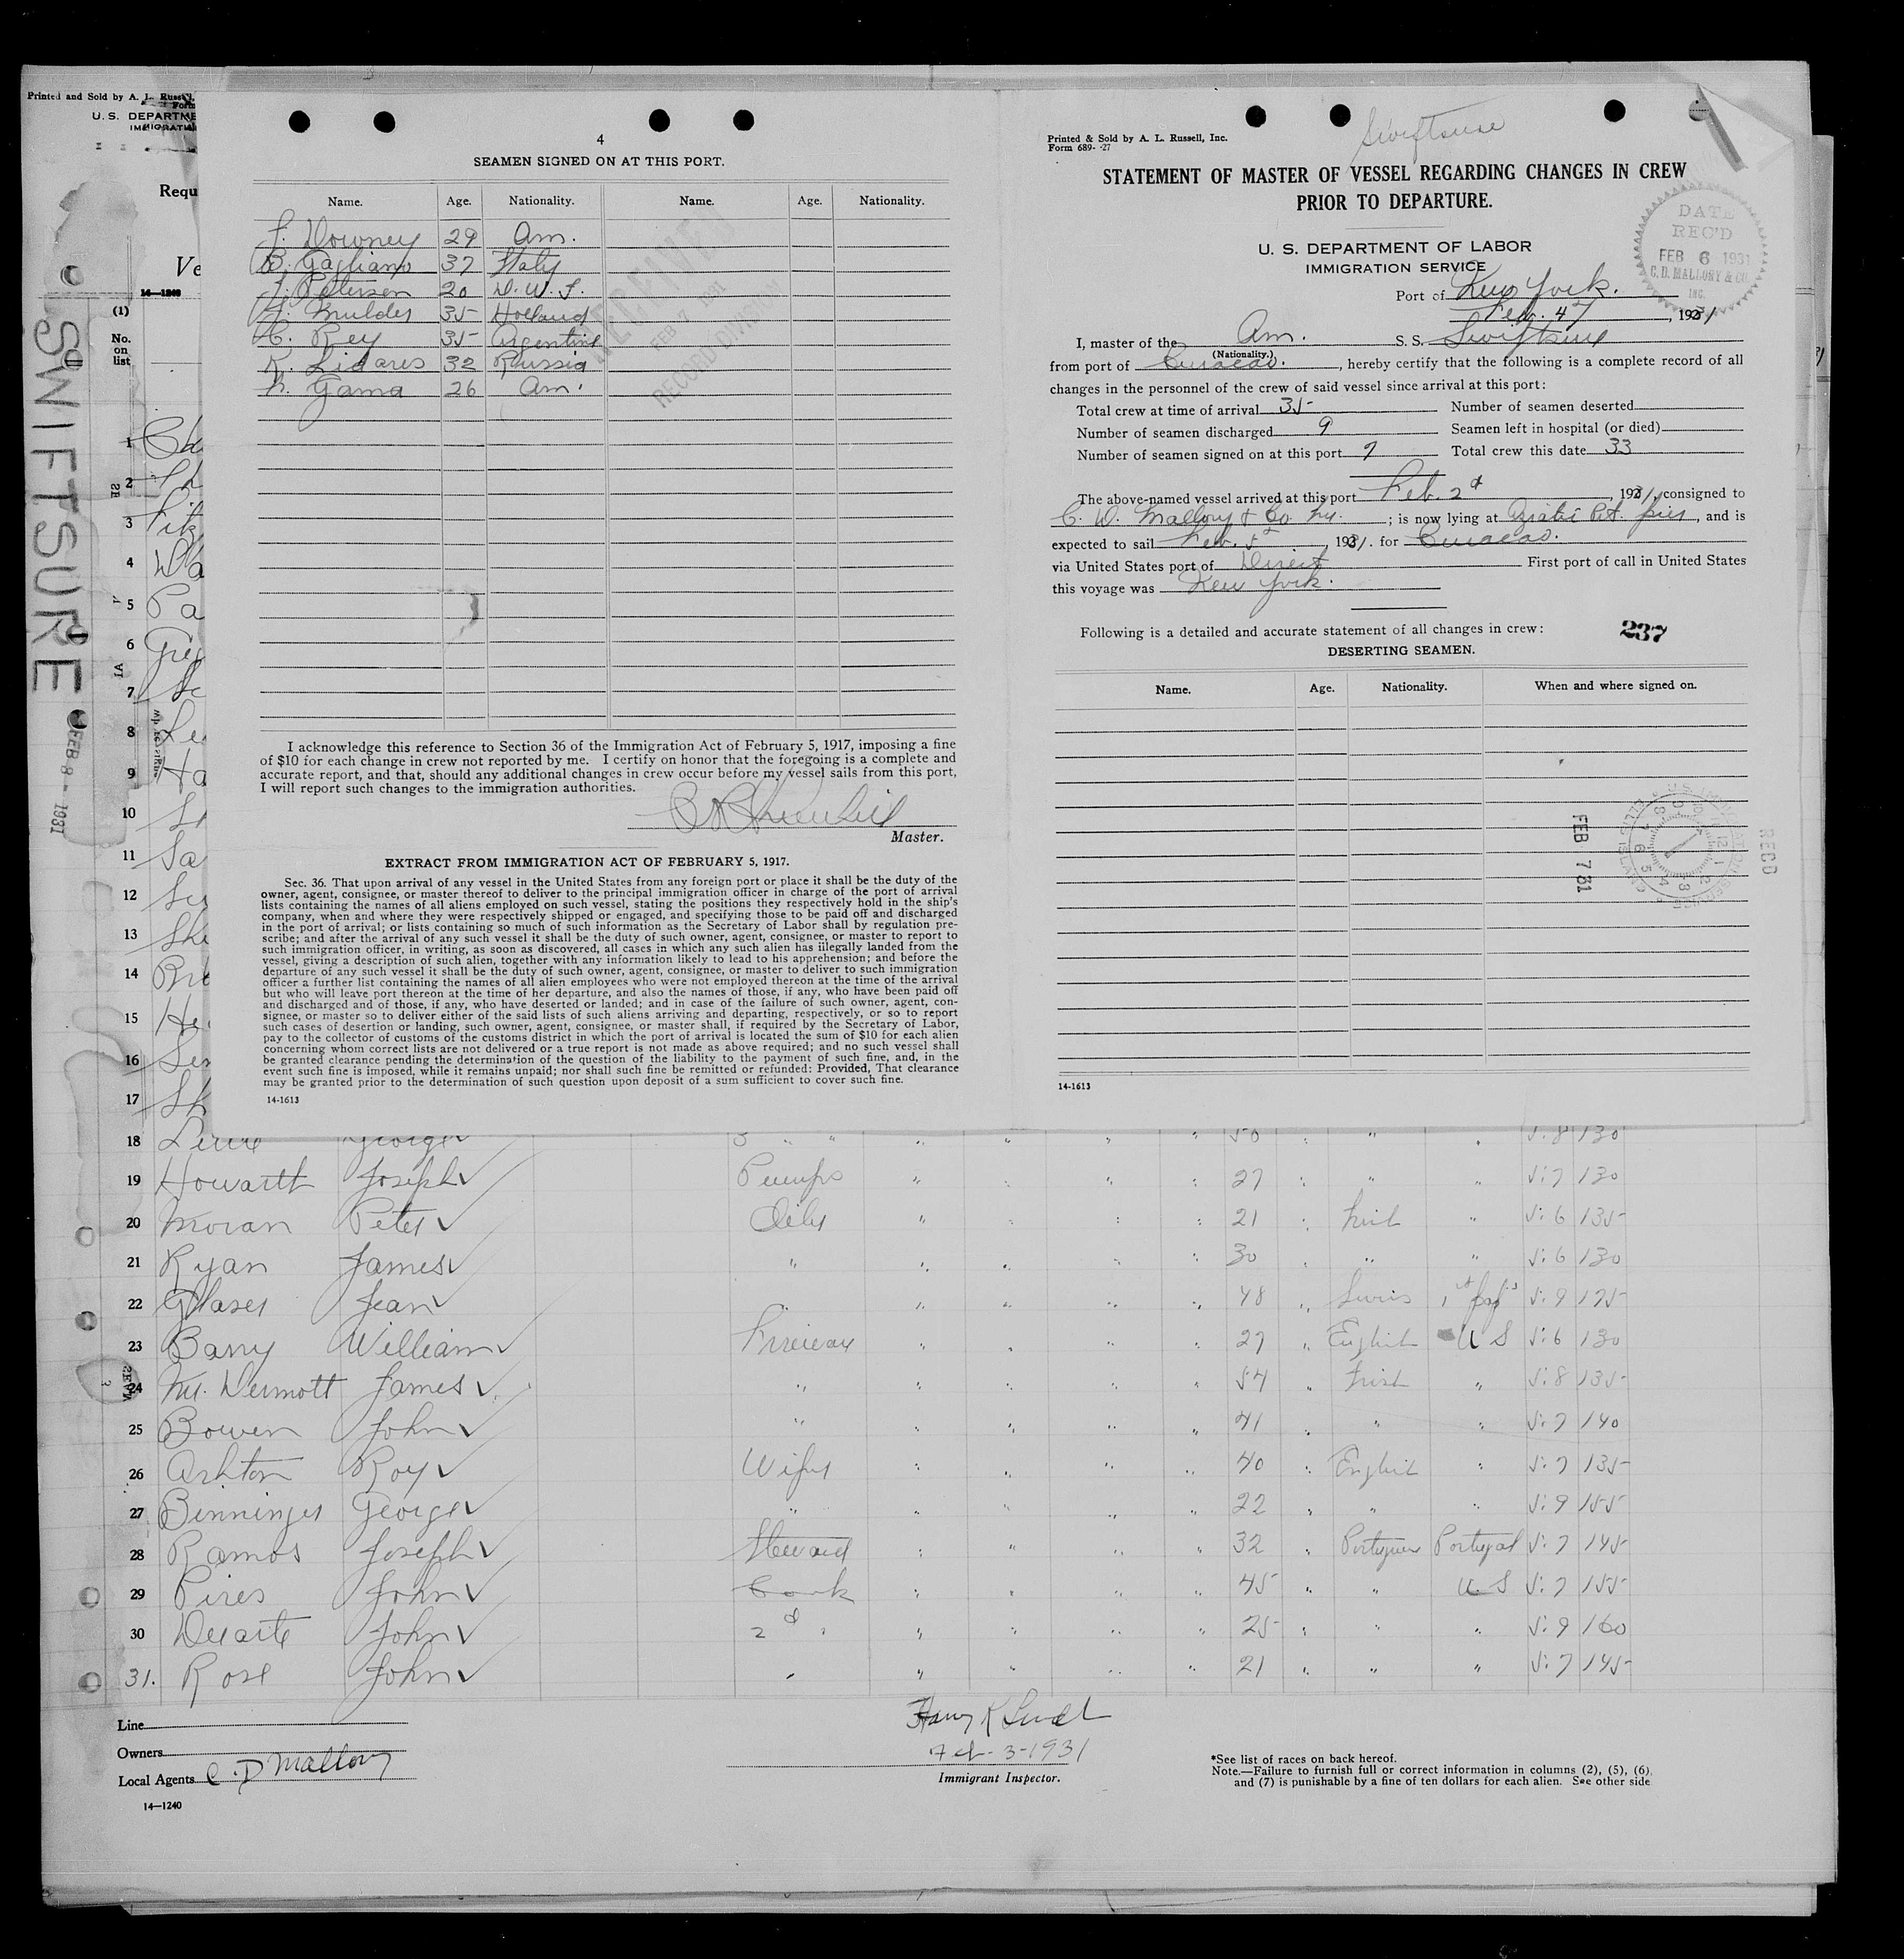 Printed and Sold by A. L. Russell,
Form
U. S. DEPARTME
IMMIGRATI
Requ
Ve
14—1240
(1)
No.
on
list
SWIFTSURE
FEB 8 - 1931
4
SEAMEN SIGNED ON AT THIS PORT.
Name. Age. Nationality. Name. Age. Nationality.
J. Downey 29 Am.
B. Gagliano 37 Italy
J. Petersen 20 D. W. I.
J. Mulder 35 Holland
C. Rey 35 Argentine
K. Lidares 32 Russia
N. Gama 26 Am.
RECEIVED
FEB 7 1931
RECORD DIVISION
I acknowledge this reference to Section 36 of the Immigration Act of February 5, 1917, imposing a fine
of $10 for each change in crew not reported by me. I certify on honor that the foregoing is a complete and
accurate report, and that, should any additional changes in crew occur before my vessel sails from this port,
I will report such changes to the immigration authorities.
Master.
EXTRACT FROM IMMIGRATION ACT OF FEBRUARY 5, 1917.
Sec. 36. That upon arrival of any vessel in the United States from any foreign port or place it shall be the duty of the
owner, agent, consignee, or master thereof to deliver to the principal immigration officer in charge of the port of arrival
lists containing the names of all aliens employed on such vessel, stating the positions they respectively hold in the ship's
company, when and where they were respectively shipped or engaged, and specifying those to be paid off and discharged
in the port of arrival; or lists containing so much of such information as the Secretary of Labor shall by regulation pre-
scribe; and after the arrival of any such vessel it shall be the duty of such owner, agent, consignee, or master to report to
such immigration officer, in writing, as soon as discovered, all cases in which any such alien has illegally landed from the
vessel, giving a description of such alien, together with any information likely to lead to his apprehension; and before the
departure of any such vessel it shall be the duty of such owner, agent, consignee, or master to deliver to such immigration
officer a further list containing the names of all alien employees who were not employed thereon at the time of the arrival
but who will leave port thereon at the time of her departure, and also the names of those, if any, who have been paid off
and discharged and of those, if any, who have deserted or landed; and in case of the failure of such owner, agent, con-
signee, or master so to deliver either of the said lists of such aliens arriving and departing, respectively, or so to report
such cases of desertion or landing, such owner, agent, consignee, or master shall, if required by the Secretary of Labor,
pay to the collector of customs of the customs district in which the port of arrival is located the sum of $10 for each alien
concerning whom correct lists are not delivered or a true report is not made as above required; and no such vessel shall
be granted clearance pending the determination of the question of the liability to the payment of such fine, and, in the
event such fine is imposed, while it remains unpaid; nor shall such fine be remitted or refunded: Provided, That clearance
may be granted prior to the determination of such question upon deposit of a sum sufficient to cover such fine.
14-1613
Swiftsure
Printed & Sold by A. L. Russell, Inc.
Form 689- -27
STATEMENT OF MASTER OF VESSEL REGARDING CHANGES IN CREW
PRIOR TO DEPARTURE.
DATE
REC'D
FEB 6 1931
C. D. MALLORY & CO.
INC.
U. S. DEPARTMENT OF LABOR
IMMIGRATION SERVICE
Port of New York.
Feb. 4, 1931
I, master of the Am. S. S. Swiftsure
(Nationality.)
from port of Curacao. , hereby certify that the following is a complete record of all
changes in the personnel of the crew of said vessel since arrival at this port:
Total crew at time of arrival 35 Number of seamen deserted
Number of seamen discharged 9 Seamen left in hospital (or died)
Number of seamen signed on at this port 7 Total crew this date 33
The above-named vessel arrived at this port Feb. 2d , 1931, consigned to
C. D. Mallory & Co. Ny. ; is now lying at Asiatic Pet. pier , and is
expected to sail Feb. 5 , 1931. for Curacao.
via United States port of Direct First port of call in United States
this voyage was New York.
Following is a detailed and accurate statement of all changes in crew: 237
DESERTING SEAMEN.
Name. Age. Nationality. When and where signed on.
RECD
FEB 7 31
14-1613
1 Ch
2 Th
3 Fitz
4 Wa
5 Pa
6 Gre
7 Sc
8 Le
9 Ha
10 St
11 Sa
12 Su
13 She
14 Bro
15 He
16 Ser
17 Sh
18 George 50 " 5:8 130
19 Howarth Joseph Pumps " 27 " 5:7 130
20 Moran Peter Oiler " 21 " Irish " 5:6 135
21 Ryan James " 30 " 5:6 130
22 Glaser Jean " 48 " Swiss 1st pap's 5:9 175
23 Barry William Fireman " 27 " English U S 5:6 130
24 Mc. Dermott James " 54 " Irish " 5:8 135
25 Bowen John " 41 " 5:7 140
26 Ashton Roy Wiper " 40 " English " 5:7 135
27 Benninger George " 22 " 5:9 155
28 Ramos Joseph Steward " 32 " Portuguese Portugal 5:7 145
29 Pires John Cook " 45 " U. S 5:7 155
30 Duarte John 2d " 25 " 5:9 160
31. Rose John " 21 " 5:7 145
Line
Owners
Local Agents C. D Mallory
14—1240
Feb - 3-1931
Immigrant Inspector.
*See list of races on back hereof.
Note.—Failure to furnish full or correct information in columns (2), (5), (6),
and (7) is punishable by a fine of ten dollars for each alien. See other side